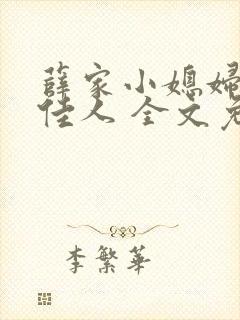 薛家小媳妇
佳人 全文免
李繁华